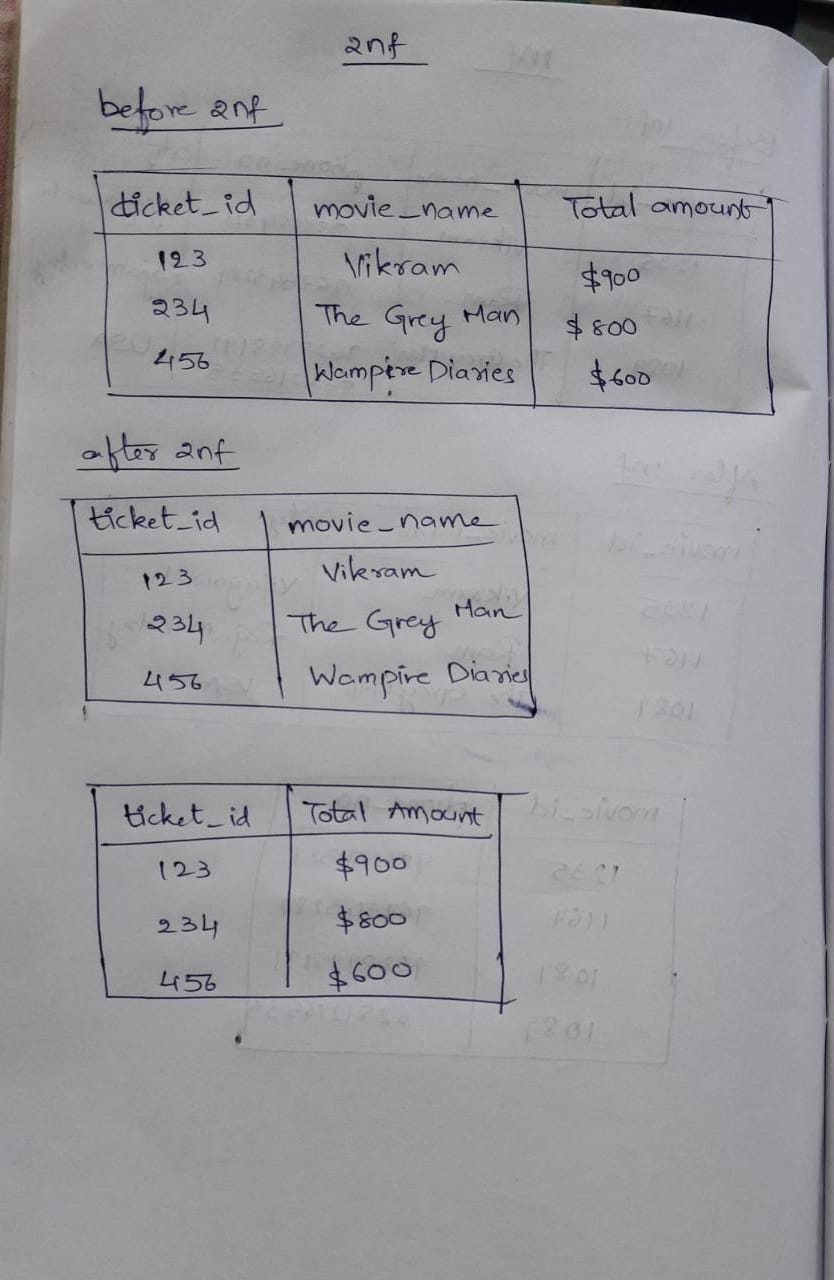 2nf
before 2nf
ticket_id movie_name Total amount
123 Vikram $900
234 The Grey Man $800
456 Wampire Diaries $600
after 2nf
ticket_id movie_name
123 Vikram
234 The Grey Man
456 Wampire Diaries
ticket_id Total Amount
123 $900
234 $800
456 $600